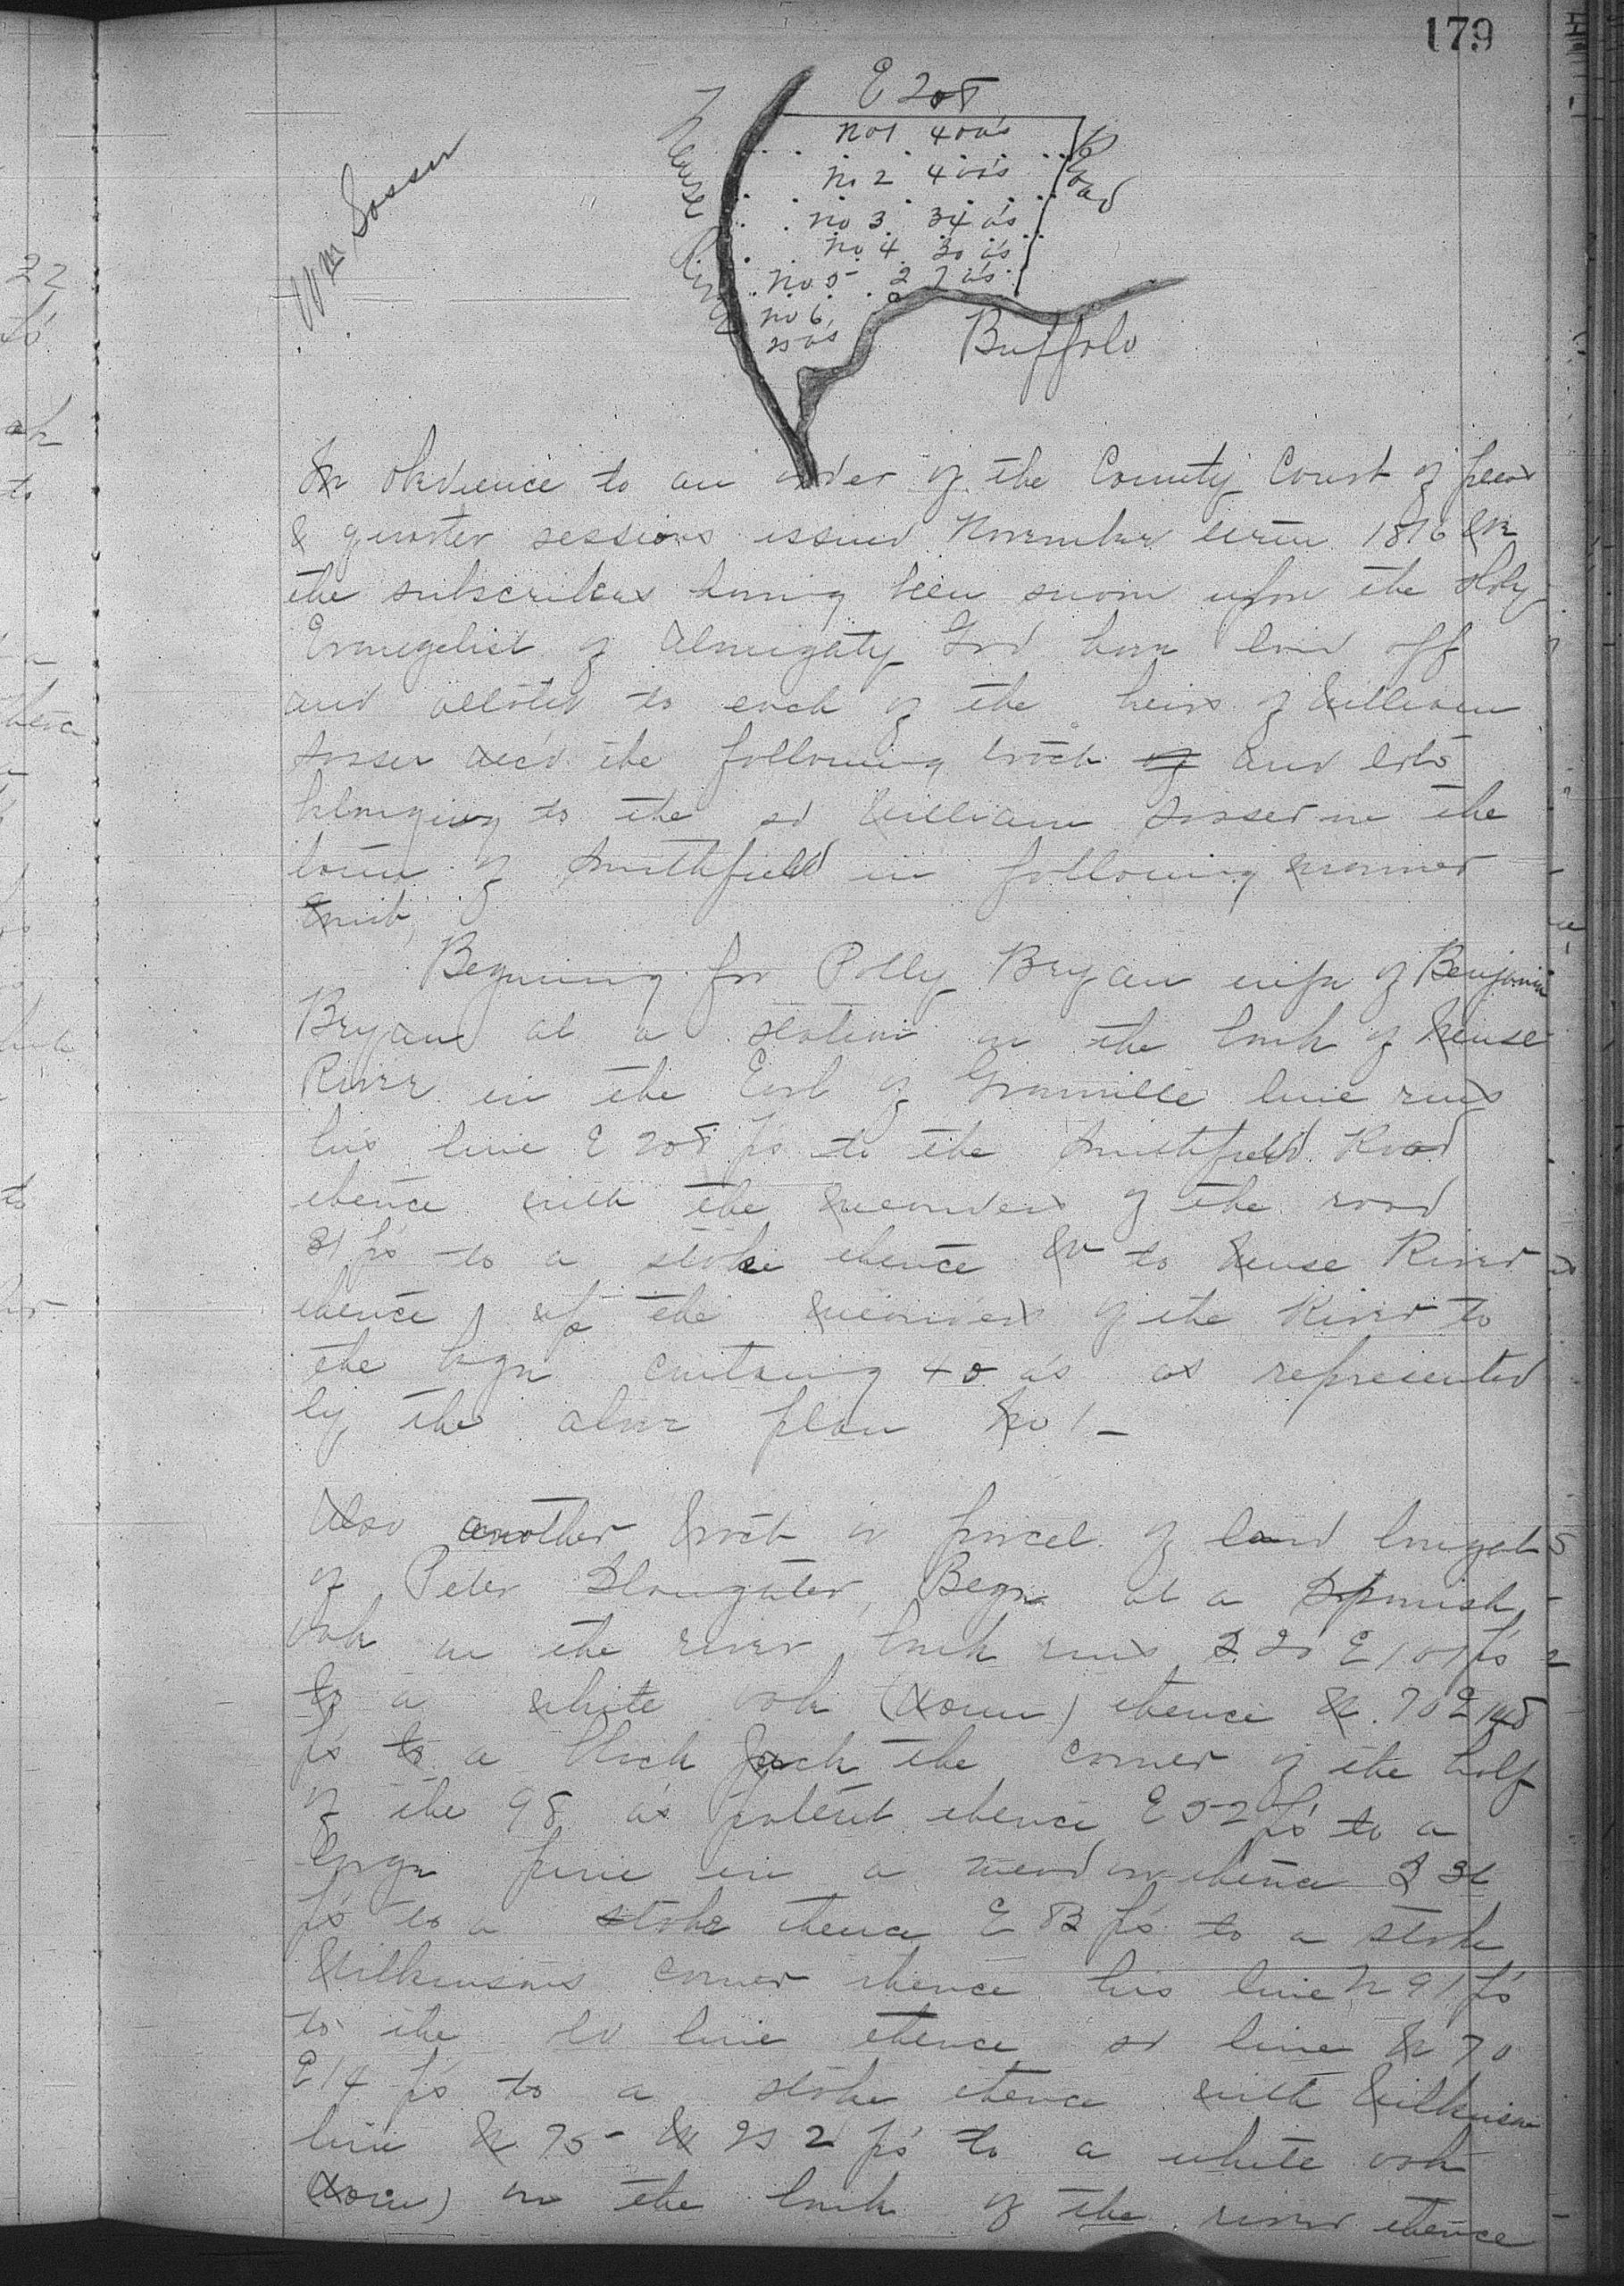 179
E 208
No 1 40 a's
No 2 40 a's
No 3 34 a's
No 4 30 a's
No 5 27 a's
No 6
Neuse River
Road
Buffalo
Wm Sasser
In obedience to an order of the County Court of pleas
& quarter sessions issued November term 1816 We
the subscribers having been sworn upon the Holy
Evangelist of Almigaty God have laid off
and alloted to each of the heirs of William
Sasser dec'd the following tract of and lots
belonging to the sd William Sasser in the
town of Smithfield in following manner
Towit,
Begnining for Polly Bryan wife of Benjamin
Bryan at a station on the bank of Neuse
River in the Earl of Granville line runs
his line E 208 p's to the Smithfield Road
thence with the meanders of the road
31 p's to a stake thence W to Neuse River
thence up the meanders of the River to
the begn containg 40 a's as represented
by the above plan No 1 –
Also another tract or parcel of land bougat
of Peter Slaugater, Begn at a Spanish
oak on the river bank runs S 20 E 101 p's
to a white oak (down) thence N. 70 E 148
p's to a black Jack the corner of the half
of the 98 a's patent thence E 52 p's to a
large pine in a meadow thence S 36
p's to a stake thence E 83 p's to a stake
Wilkinsons corner thence his line N 91 p's
to the old line thence sd line N 70
E 14 p's to a stake thence with Wilkinson
line N 75 W 252 p's to a white oak
(down) on the bank of the river thence